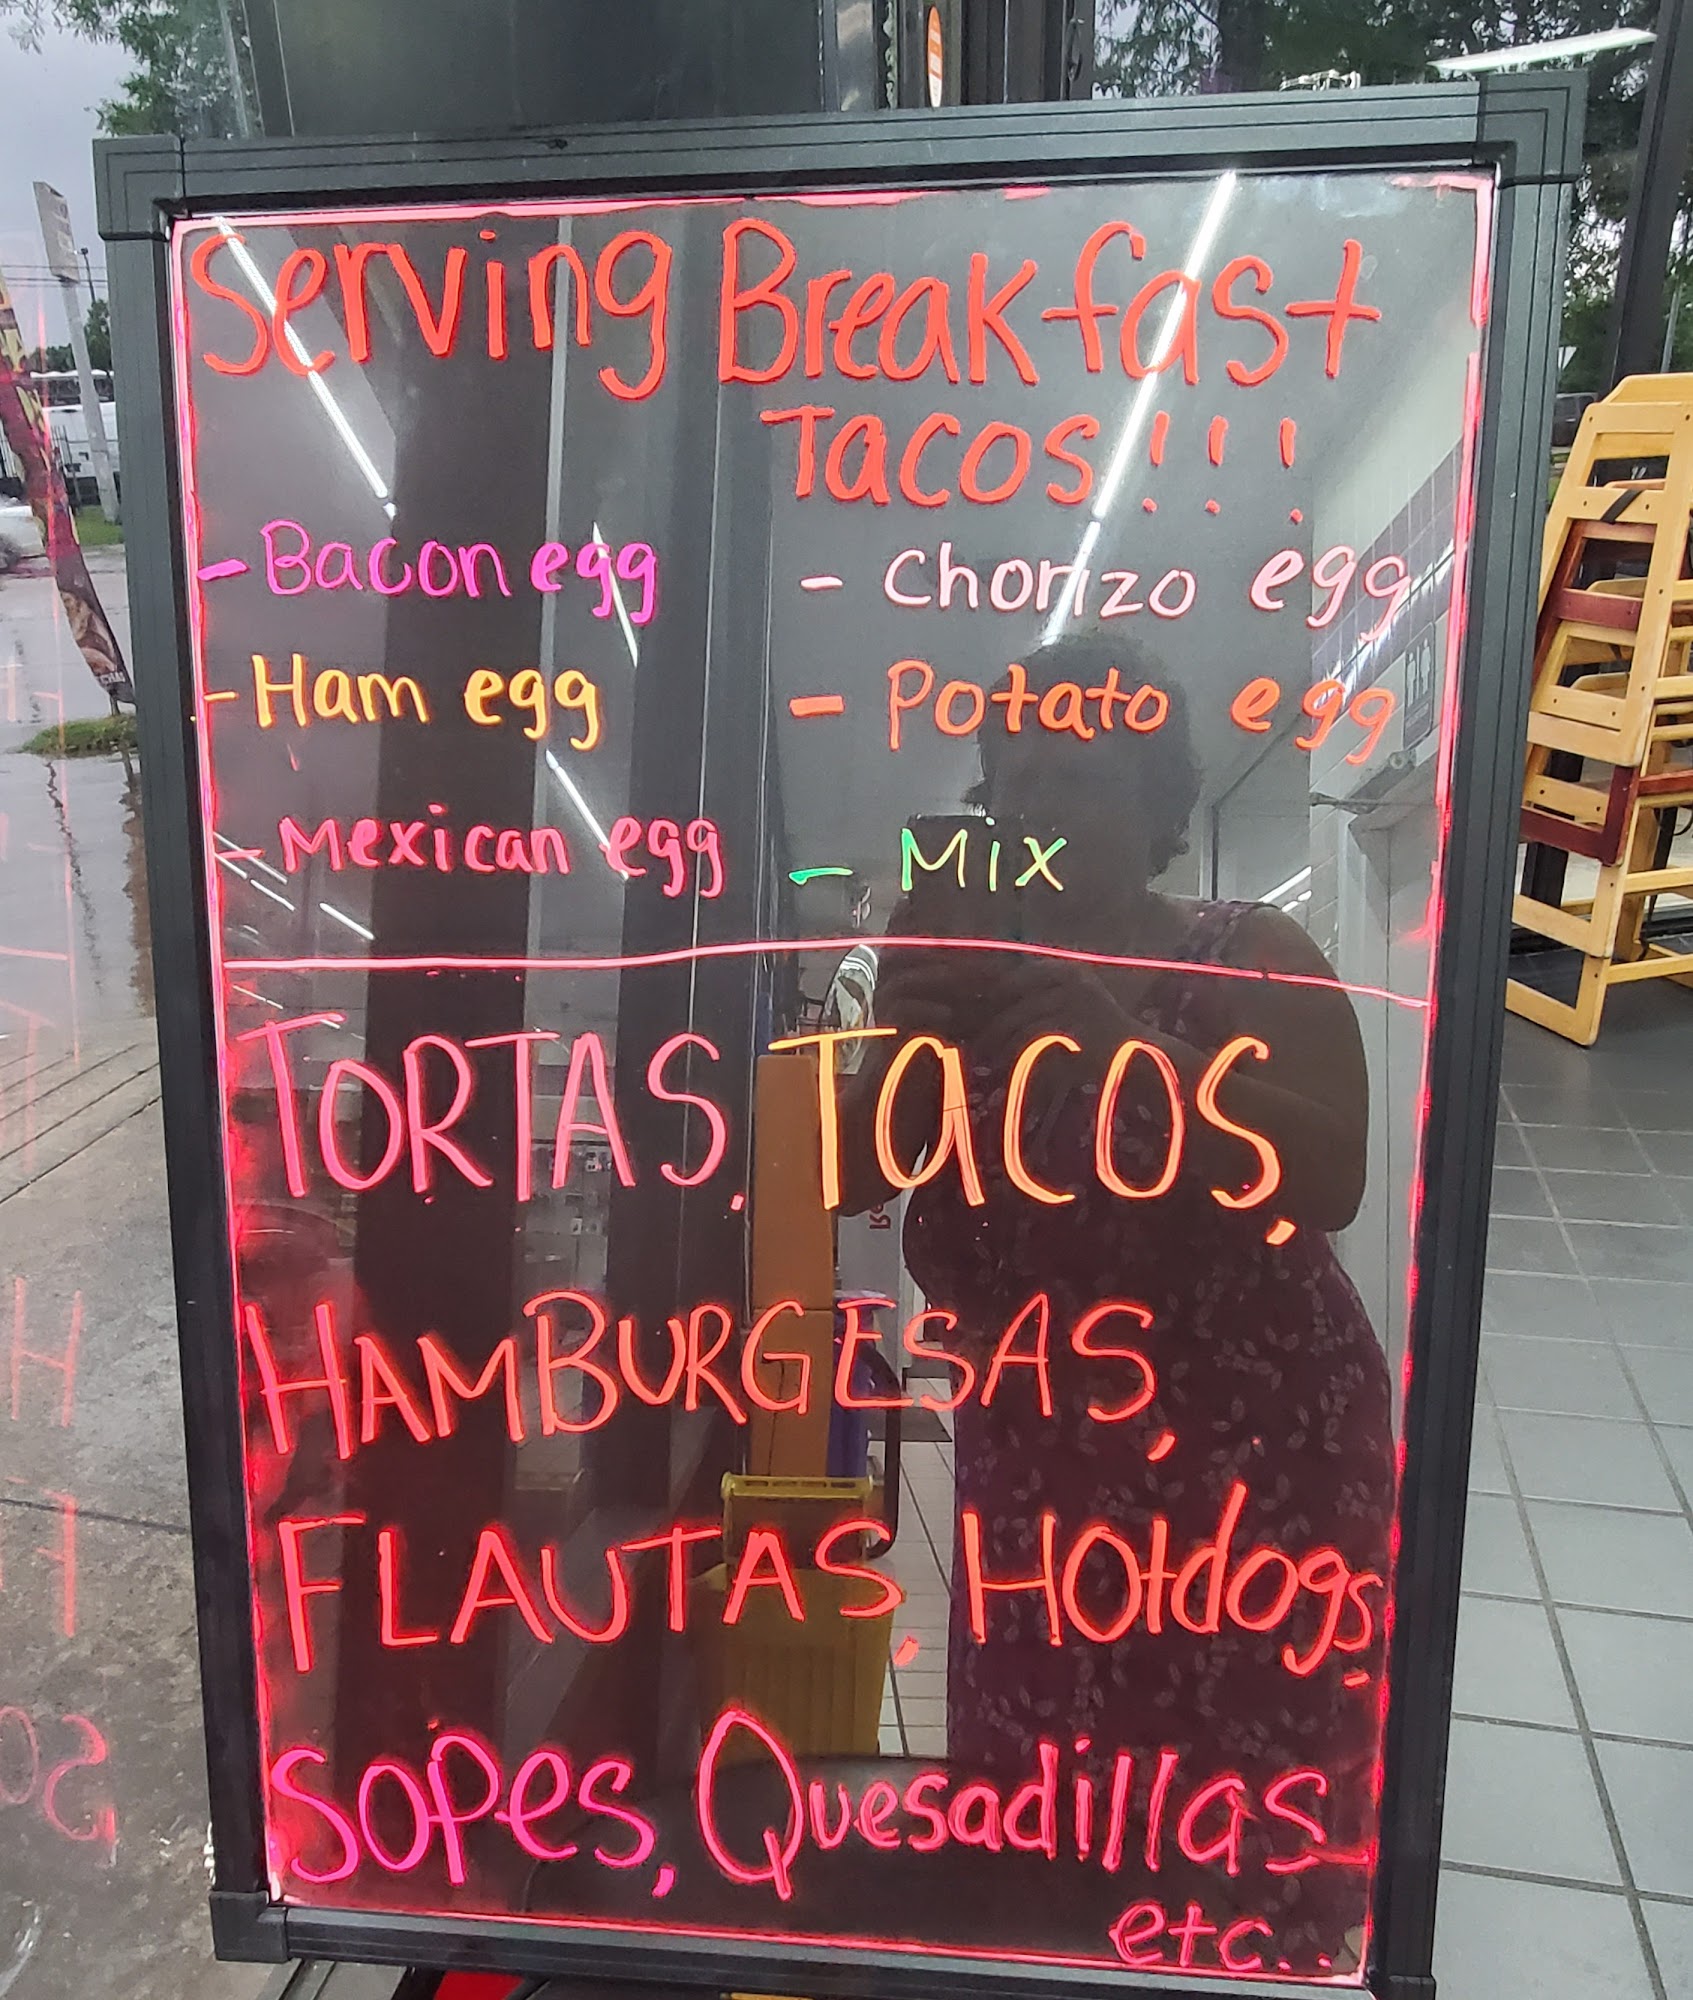 Serving Breakfast
Tacos!!!
- Bacon egg
- Chorizo egg
- Ham egg
- Potato egg
- Mexican egg
- Mix
TORTAS, TACOS,
HAMBURGESAS,
FLAUTAS, Hotdogs,
Sopes, Quesadillas
etc..